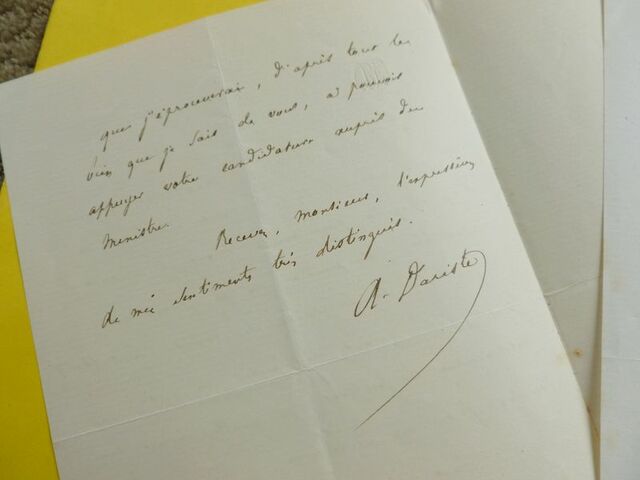 que j'éprouverai, d'après tout le
bien que je sais de vous, à pouvoir
appuyer votre candidature auprès du
Ministre. Recevez, monsieur, l'expression
de mes sentiments très distingués.
A. Dariste